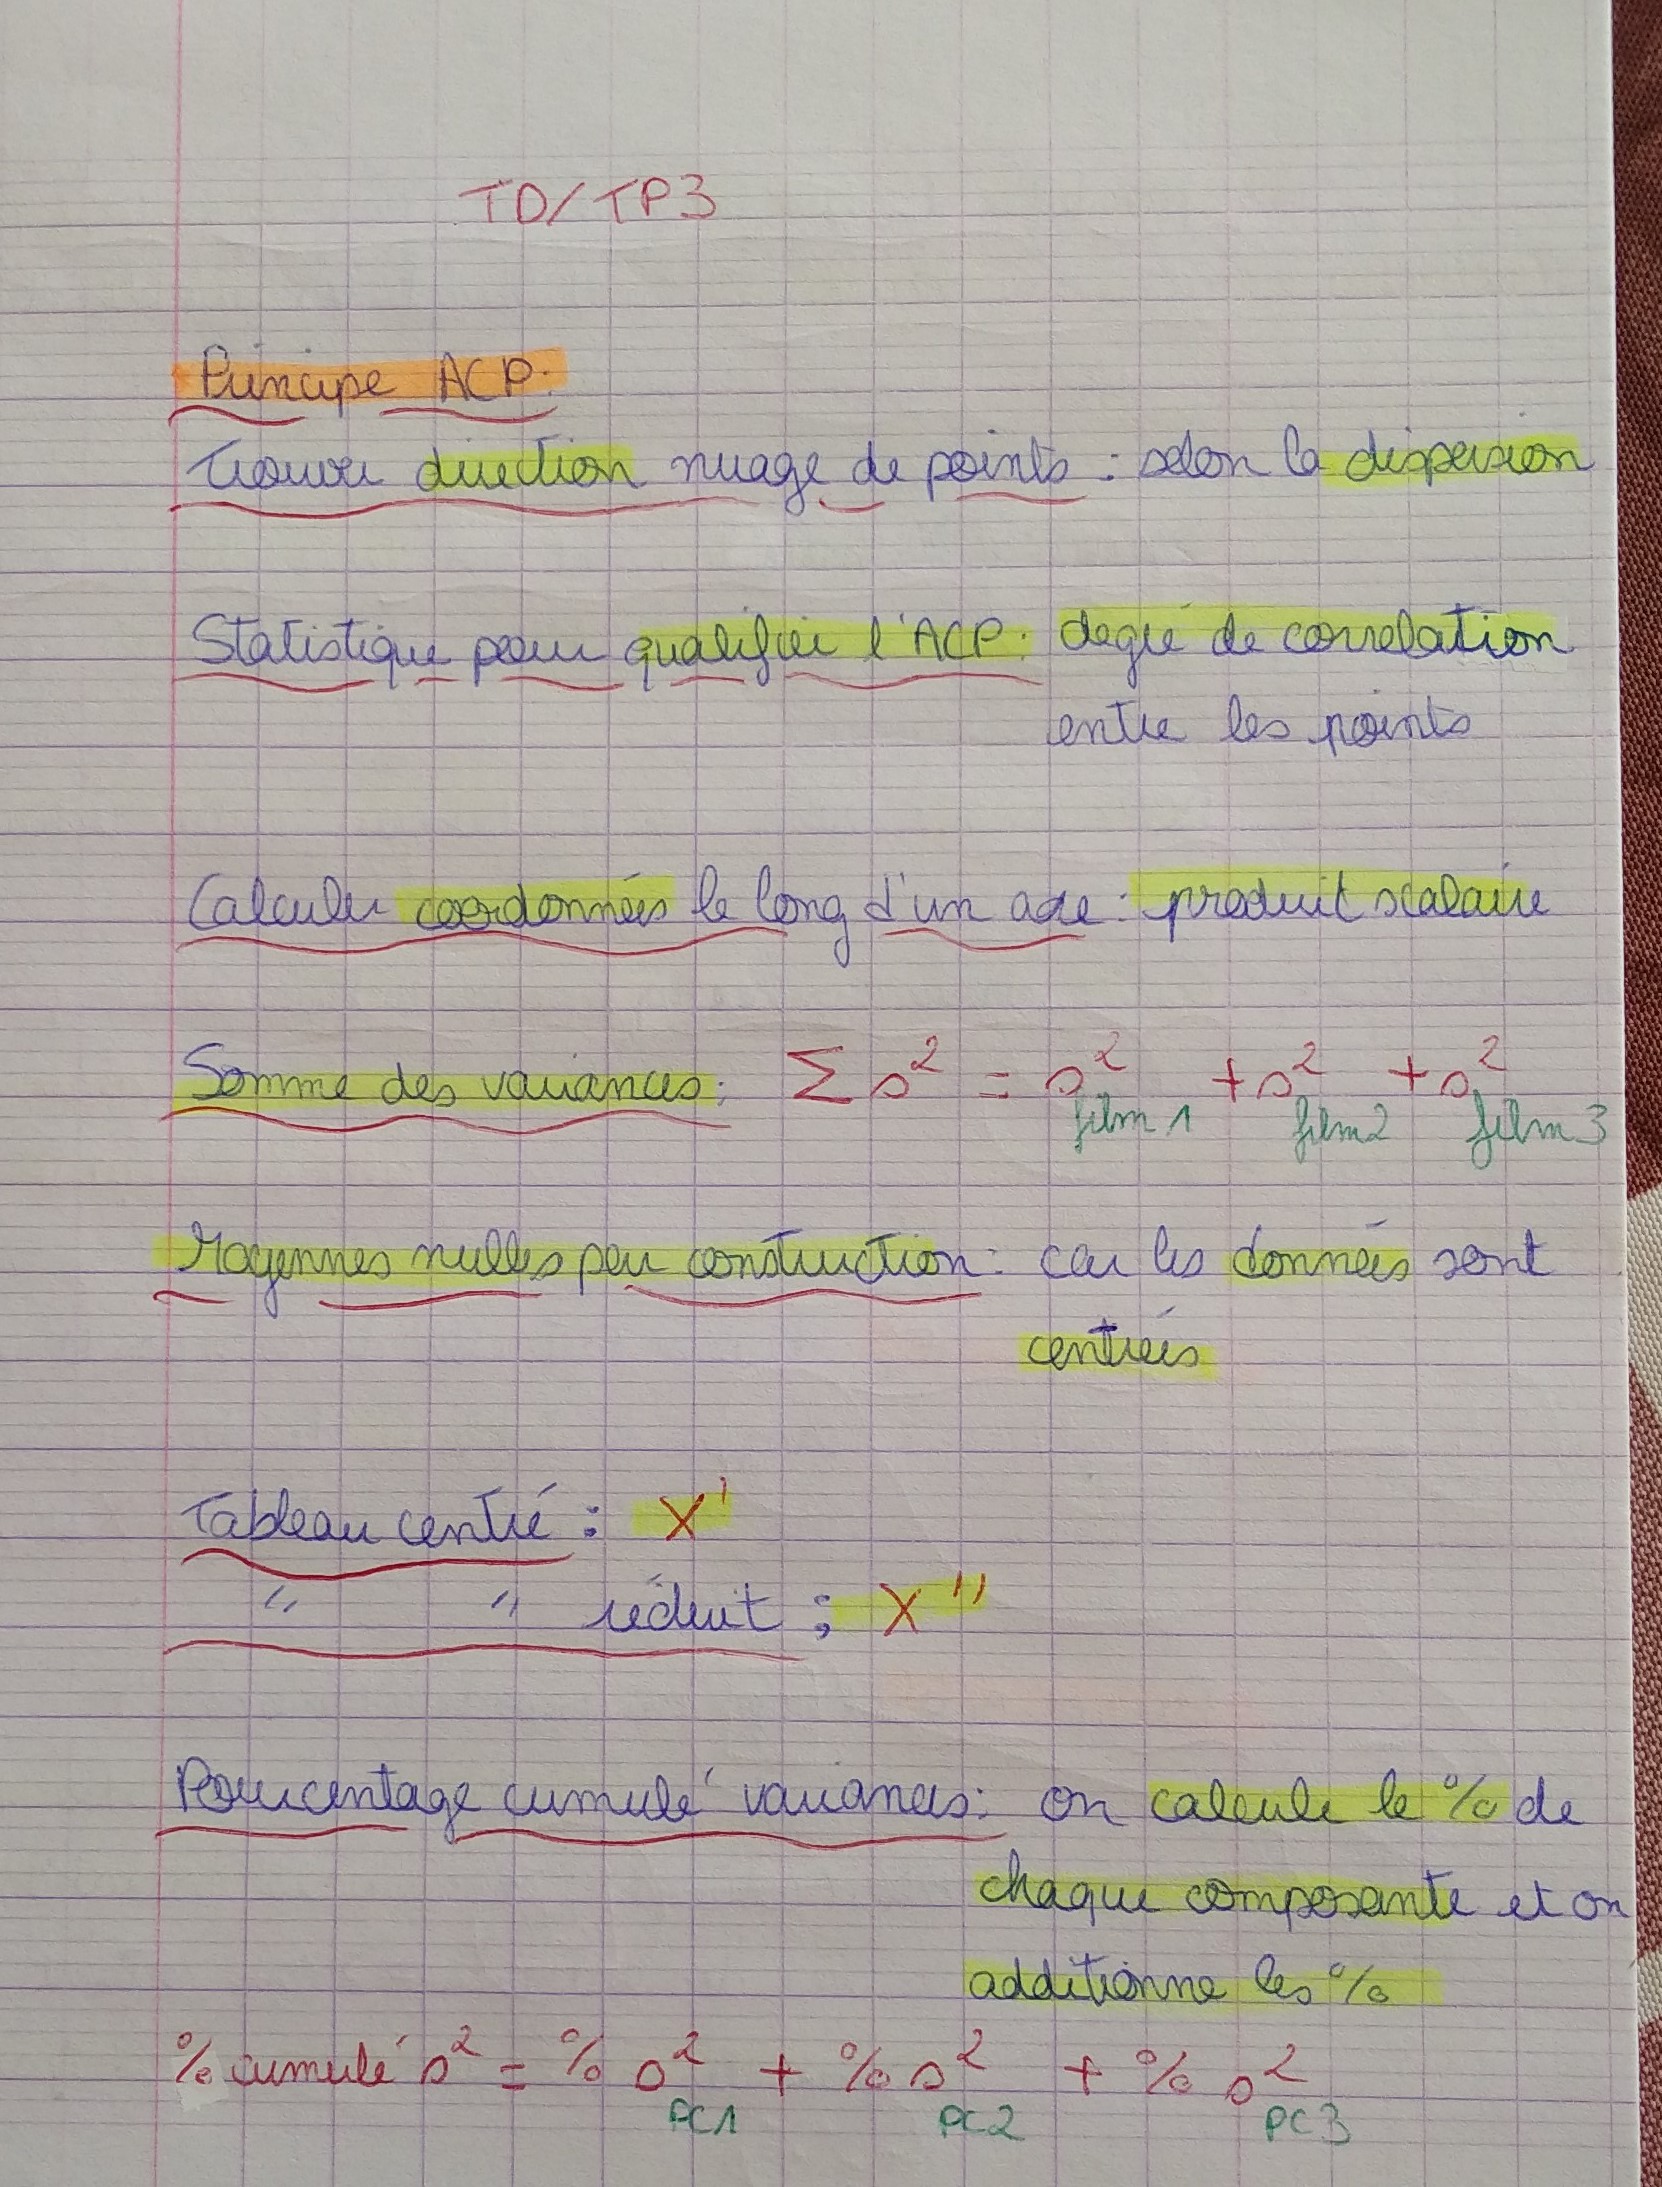 TD/TP3
Principe ACP:
Trouver direction nuage de points : selon la dispersion
Statistique pour qualifier l'ACP: degré de correlation
entre les points
Calculer coordonnées le long d'un axe : produit scalaire
Somme des variances: Σ s² = s² film 1 + s² film 2 + s² film 3
Moyennes nulles par construction: car les données sont
centrées
Tableau centré : X'
" " réduit : X''
Pourcentage cumulé variances: on calcule le % de
chaque composante et on
additionne les %
% cumulé s² = % s² PC1 + % s² PC2 + % s² PC3